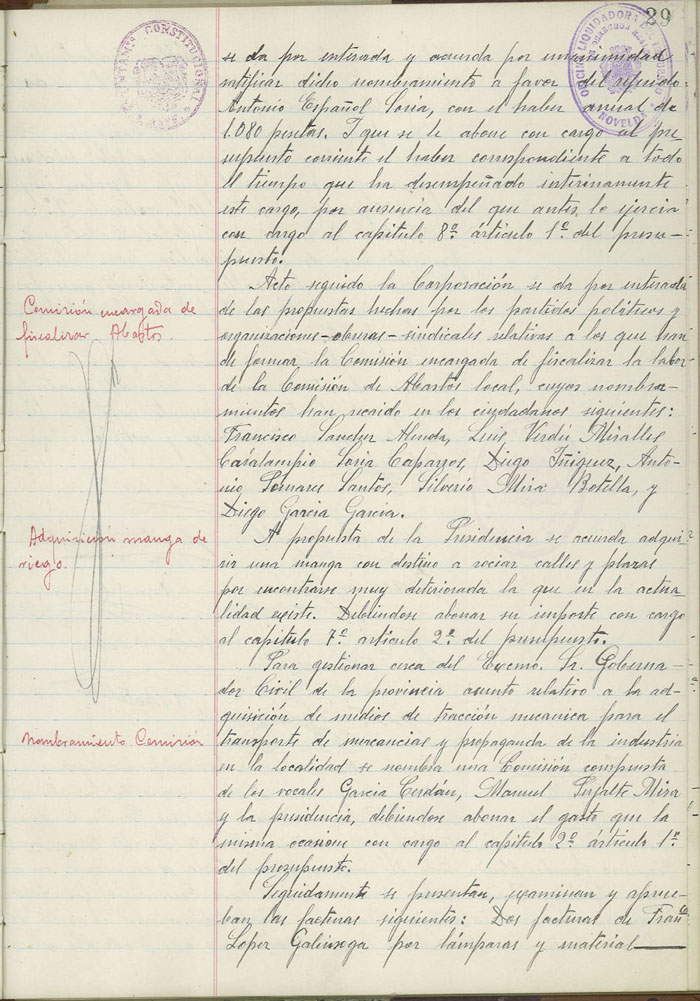 29
AYUNTAMTO CONSTITUCIONAL
OFICINA LIQUIDADORA
NOVELDA
se da por enterada y acuerda por unanimidad
ratificar dicho nombramiento a favor del referido
Antonio Español Soria, con el haber anual de
1.080 pesetas. Y que se le abone con cargo al pre
supuesto corriente el haber correspondiente a todo
el tiempo que ha desempeñado interinamente
este cargo, por ausencia del que antes lo ejercia
con cargo al capitulo 8º artículo 1º del presu-
puesto.
Comisión encargada de
fiscalizar Abastos.
Acto seguido la Corporación se da por enterada
de las propuestas hechas por los partidos políticos y
organizaciones-obreras-sindicales relativas a los que han
de formar la Comisión encargada de fiscalizar la labor
de la Comisión de Abastos local, cuyos nombra-
mientos han recaido en los ciudadanos siguientes:
Francisco Sanchez Alenda, Luis Verdú Miralles
Caralampio Soria Caparros, Diego Iñiguez, Anto-
nio Pomares Santos, Silverio Mira Botella, y
Diego Garcia Garcia.
Adquisición manga de
riego.
A propuesta de la Presidencia se acuerda adqui
rir una manga con destino a rociar calles y plazas
por encontrarse muy deteriorada la que en la actua-
lidad existe. Debiendose abonar su importe con cargo
al capitulo 7º artículo 2º del presupuesto.
Nombramiento Comisión
Para gestionar cerca del Excmo. Sr. Goberna-
dor Civil de la provincia asunto relativo a la ad-
quisición de medios de tracción mecanica para el
transporte de mercancias y propaganda de la industria
en la localidad se nombra una Comisión compuesta
de los vocales Garcia Cerdán, Manuel Mira
y la presidencia, debiendose abonar el gasto que la
misma ocasione con cargo al capitulo 2º artículo 1º
del presupuesto.
Seguidamente se presentan, examinan y aprue-
ban las facturas siguientes: Dos facturas de Franco
Lopez Galinsoga por lámparas y material